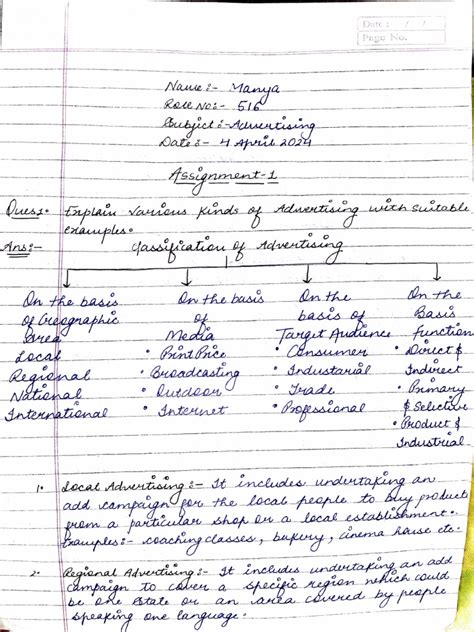 Date : / /
Page No.
Name:- Manya
Roll No:- 516
Subject:- Advertising
Date:- 4 April 2024
Assignment-1
Ques1. Explain various kinds of Advertising with suitable
examples.
Ans:- Classification of Advertising
On the basis
of Geographic
Area
Local
Regional
National
International
On the basis
of
Media
• Print Price
• Broadcasting
• Outdoor
• Internet
On the
basis of
Target Audience
• Consumer
• Industarial
• Trade
• Professional
On the
Basis
function
• Direct &
Indirect
• Primary
& Selective
• Product &
Industrial
1. Local Advertising:- It includes undertaking an
add campaign for the local people to buy product
from a particular shop or a local establishment.
Examples:- coaching classes, bakery, cinema house etc.
2. Regional Advertising:- It includes undertaking an add
campaign to cover a specific region which could
be one state or an area covered by people
speaking one language.